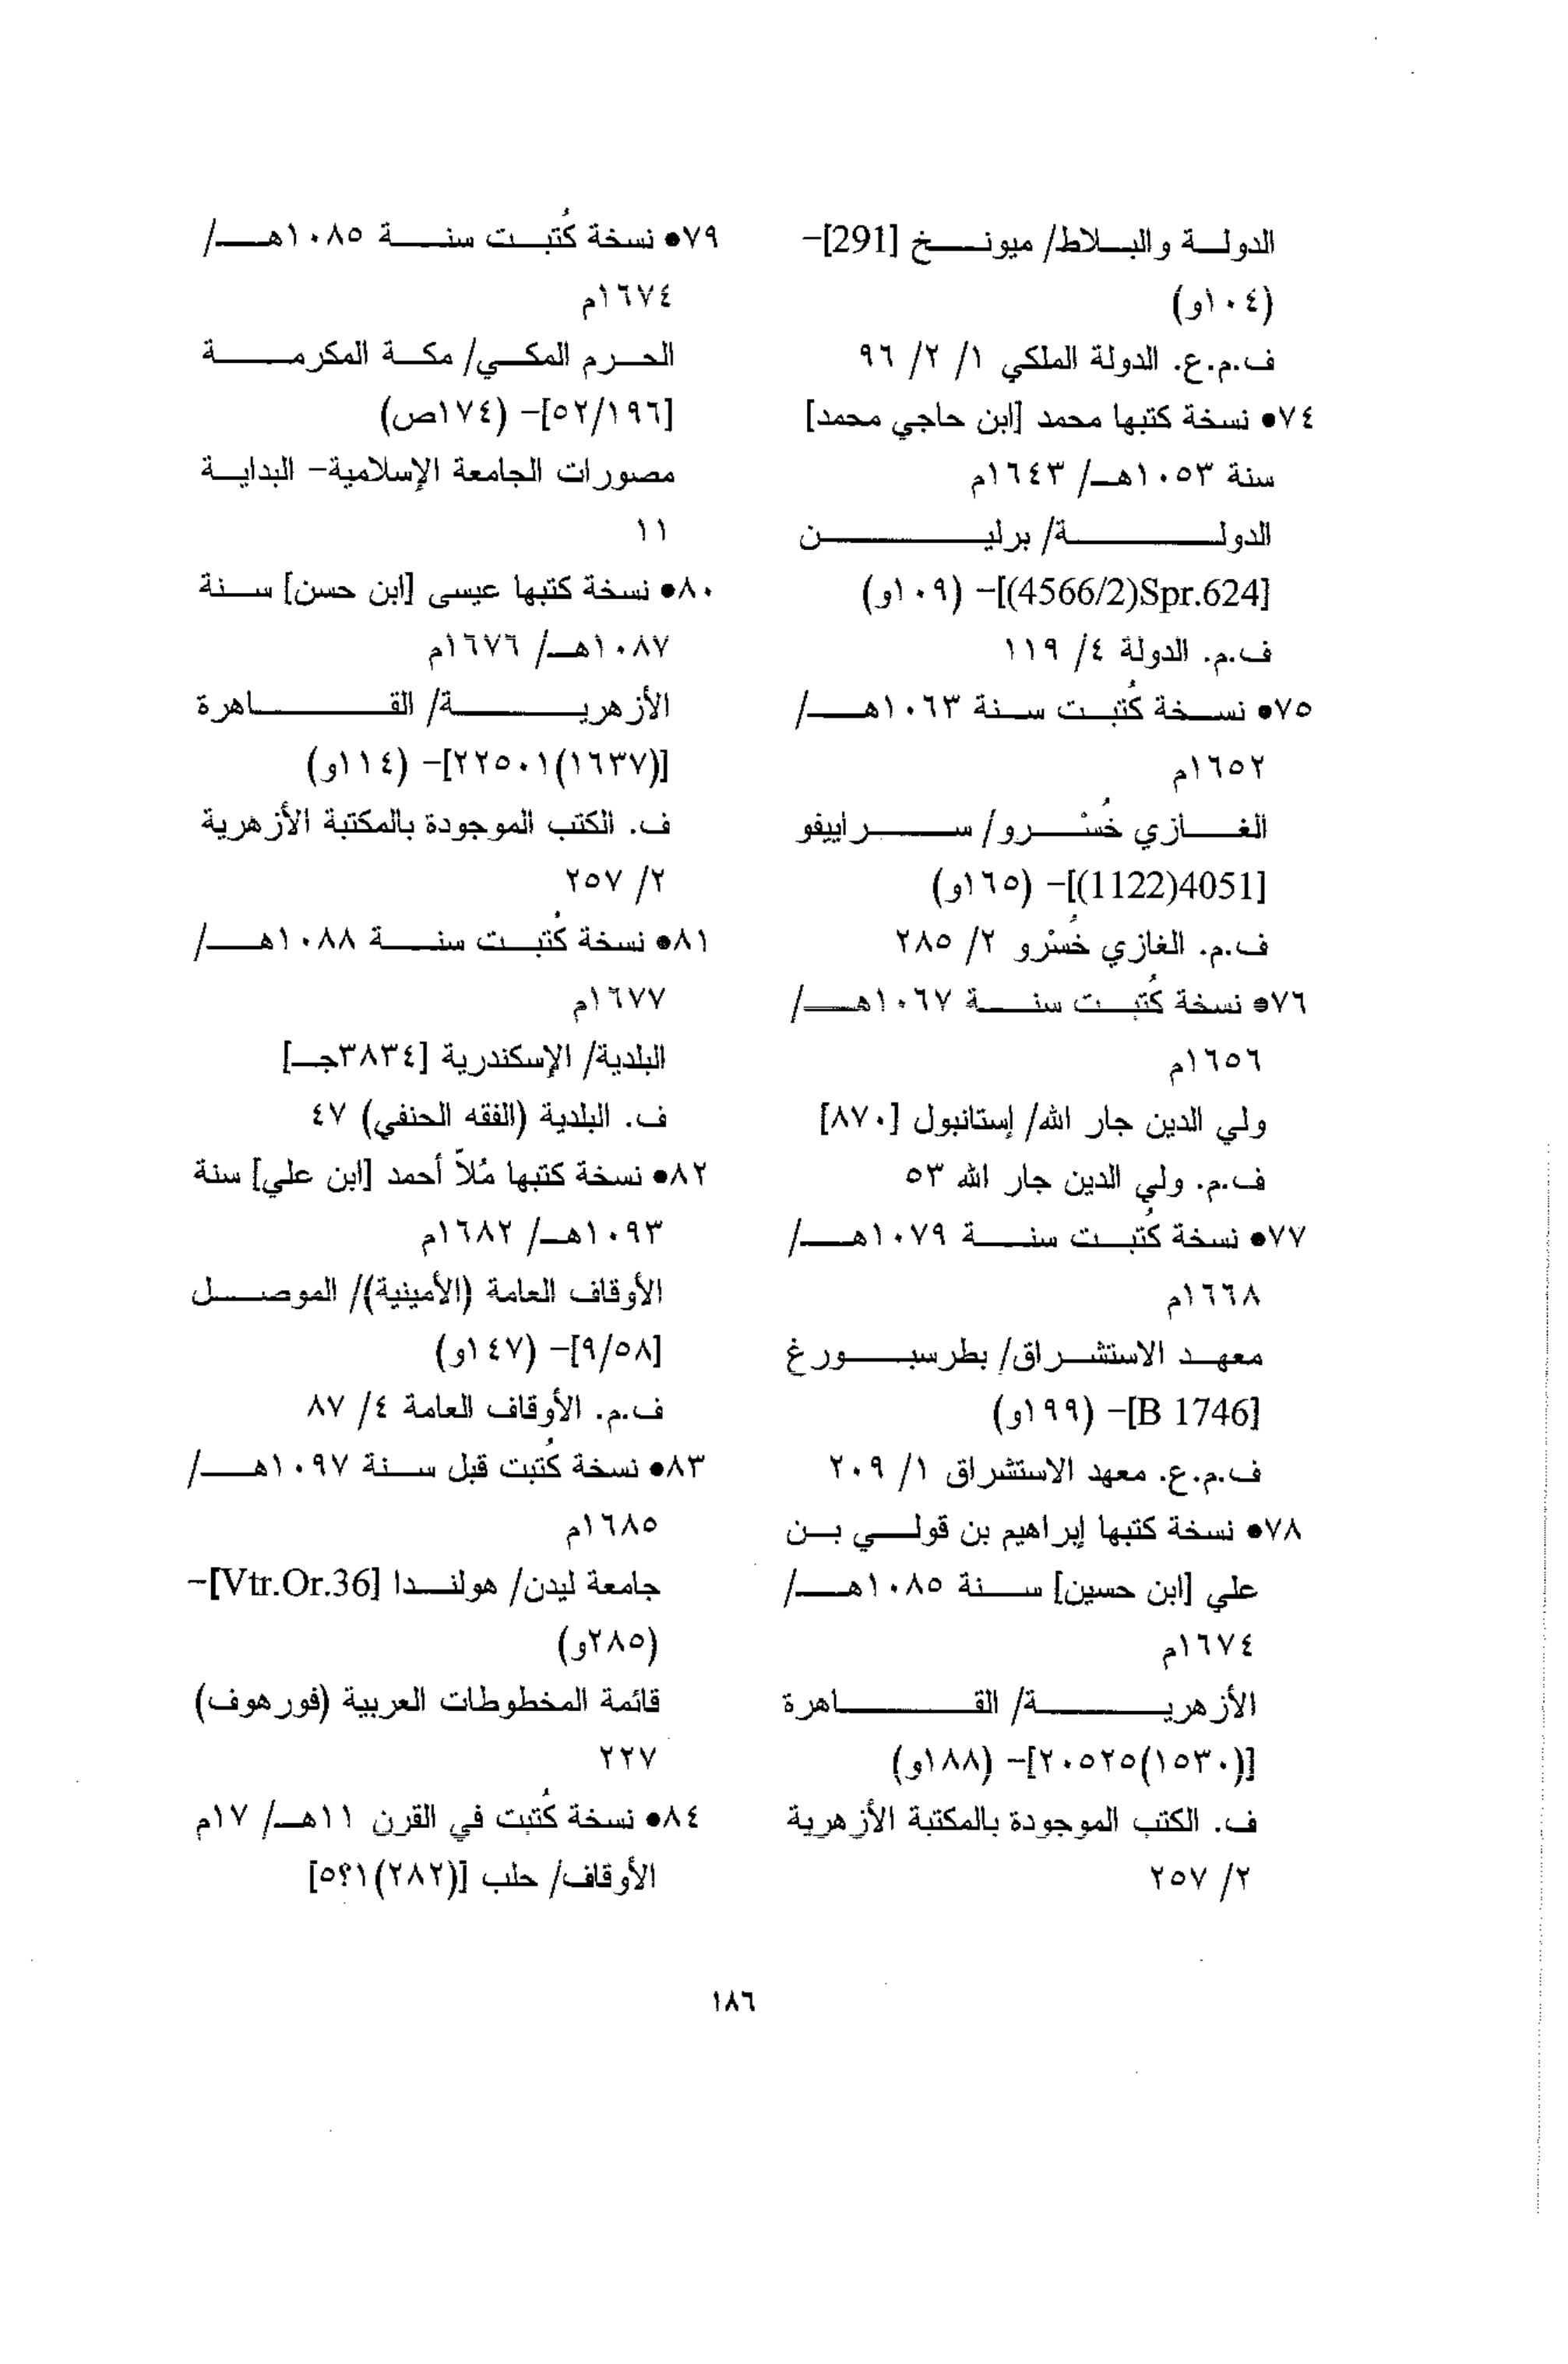 الدولة والبلاط/ ميونخ [291]-
(١٠٤و)
ف.م.ع. الدولة الملكي ١/ ٢/ ٩٦
٧٤• نسخة كتبها محمد [ابن حاجي محمد]
سنة ١٠٥٣هـ/ ١٦٤٣م
الدولة/ برلين
[Spr.624(4566/2)]- (١٠٩و)
ف.م. الدولة ٤/ ١١٩
٧٥• نسخة كُتبت سنة ١٠٦٣هـ/
١٦٥٢م
الغازي خُسْرو/ سراييفو
[4051(1122)]- (١٦٥و)
ف.م. الغازي خُسْرو ٢/ ٢٨٥
٧٦• نسخة كُتبت سنة ١٠٦٧هـ/
١٦٥٦م
ولي الدين جار الله/ إستانبول [٨٧٠]
ف.م. ولي الدين جار الله ٥٣
٧٧• نسخة كُتبت سنة ١٠٧٩هـ/
١٦٦٨م
معهد الاستشراق/ بطرسبورغ
[B 1746]- (١٩٩و)
ف.م.ع. معهد الاستشراق ١/ ٢٠٩
٧٨• نسخة كتبها إبراهيم بن قولي بن
علي [ابن حسين] سنة ١٠٨٥هـ/
١٦٧٤م
الأزهرية/ القاهرة
[(١٥٣٠)٢٠٥٢٥]- (١٨٨و)
ف. الكتب الموجودة بالمكتبة الأزهرية
٢/ ٢٥٧
٧٩• نسخة كُتبت سنة ١٠٨٥هـ/
١٦٧٤م
الحرم المكي/ مكة المكرمة
[٥٢/١٩٦]- (١٧٤ص)
مصورات الجامعة الإسلامية- البداية
١١
٨٠• نسخة كتبها عيسى [ابن حسن] سنة
١٠٨٧هـ/ ١٦٧٦م
الأزهرية/ القاهرة
[(١٦٣٧)٢٢٥٠١]- (١١٤و)
ف. الكتب الموجودة بالمكتبة الأزهرية
٢/ ٢٥٧
٨١• نسخة كُتبت سنة ١٠٨٨هـ/
١٦٧٧م
البلدية/ الإسكندرية [٣٨٣٤جـ]
ف. البلدية (الفقه الحنفي) ٤٧
٨٢• نسخة كتبها مُلاّ أحمد [ابن علي] سنة
١٠٩٣هـ/ ١٦٨٢م
الأوقاف العامة (الأمينية)/ الموصل
[٩/٥٨]- (١٤٧و)
ف.م. الأوقاف العامة ٤/ ٨٧
٨٣• نسخة كُتبت قبل سنة ١٠٩٧هـ/
١٦٨٥م
جامعة ليدن/ هولندا [Vtr.Or.36]-
(٢٨٥و)
قائمة المخطوطات العربية (فورهوف)
٢٢٧
٨٤• نسخة كُتبت في القرن ١١هـ/ ١٧م
الأوقاف/ حلب [(٢٨٢)١؟٥]
١٨٦